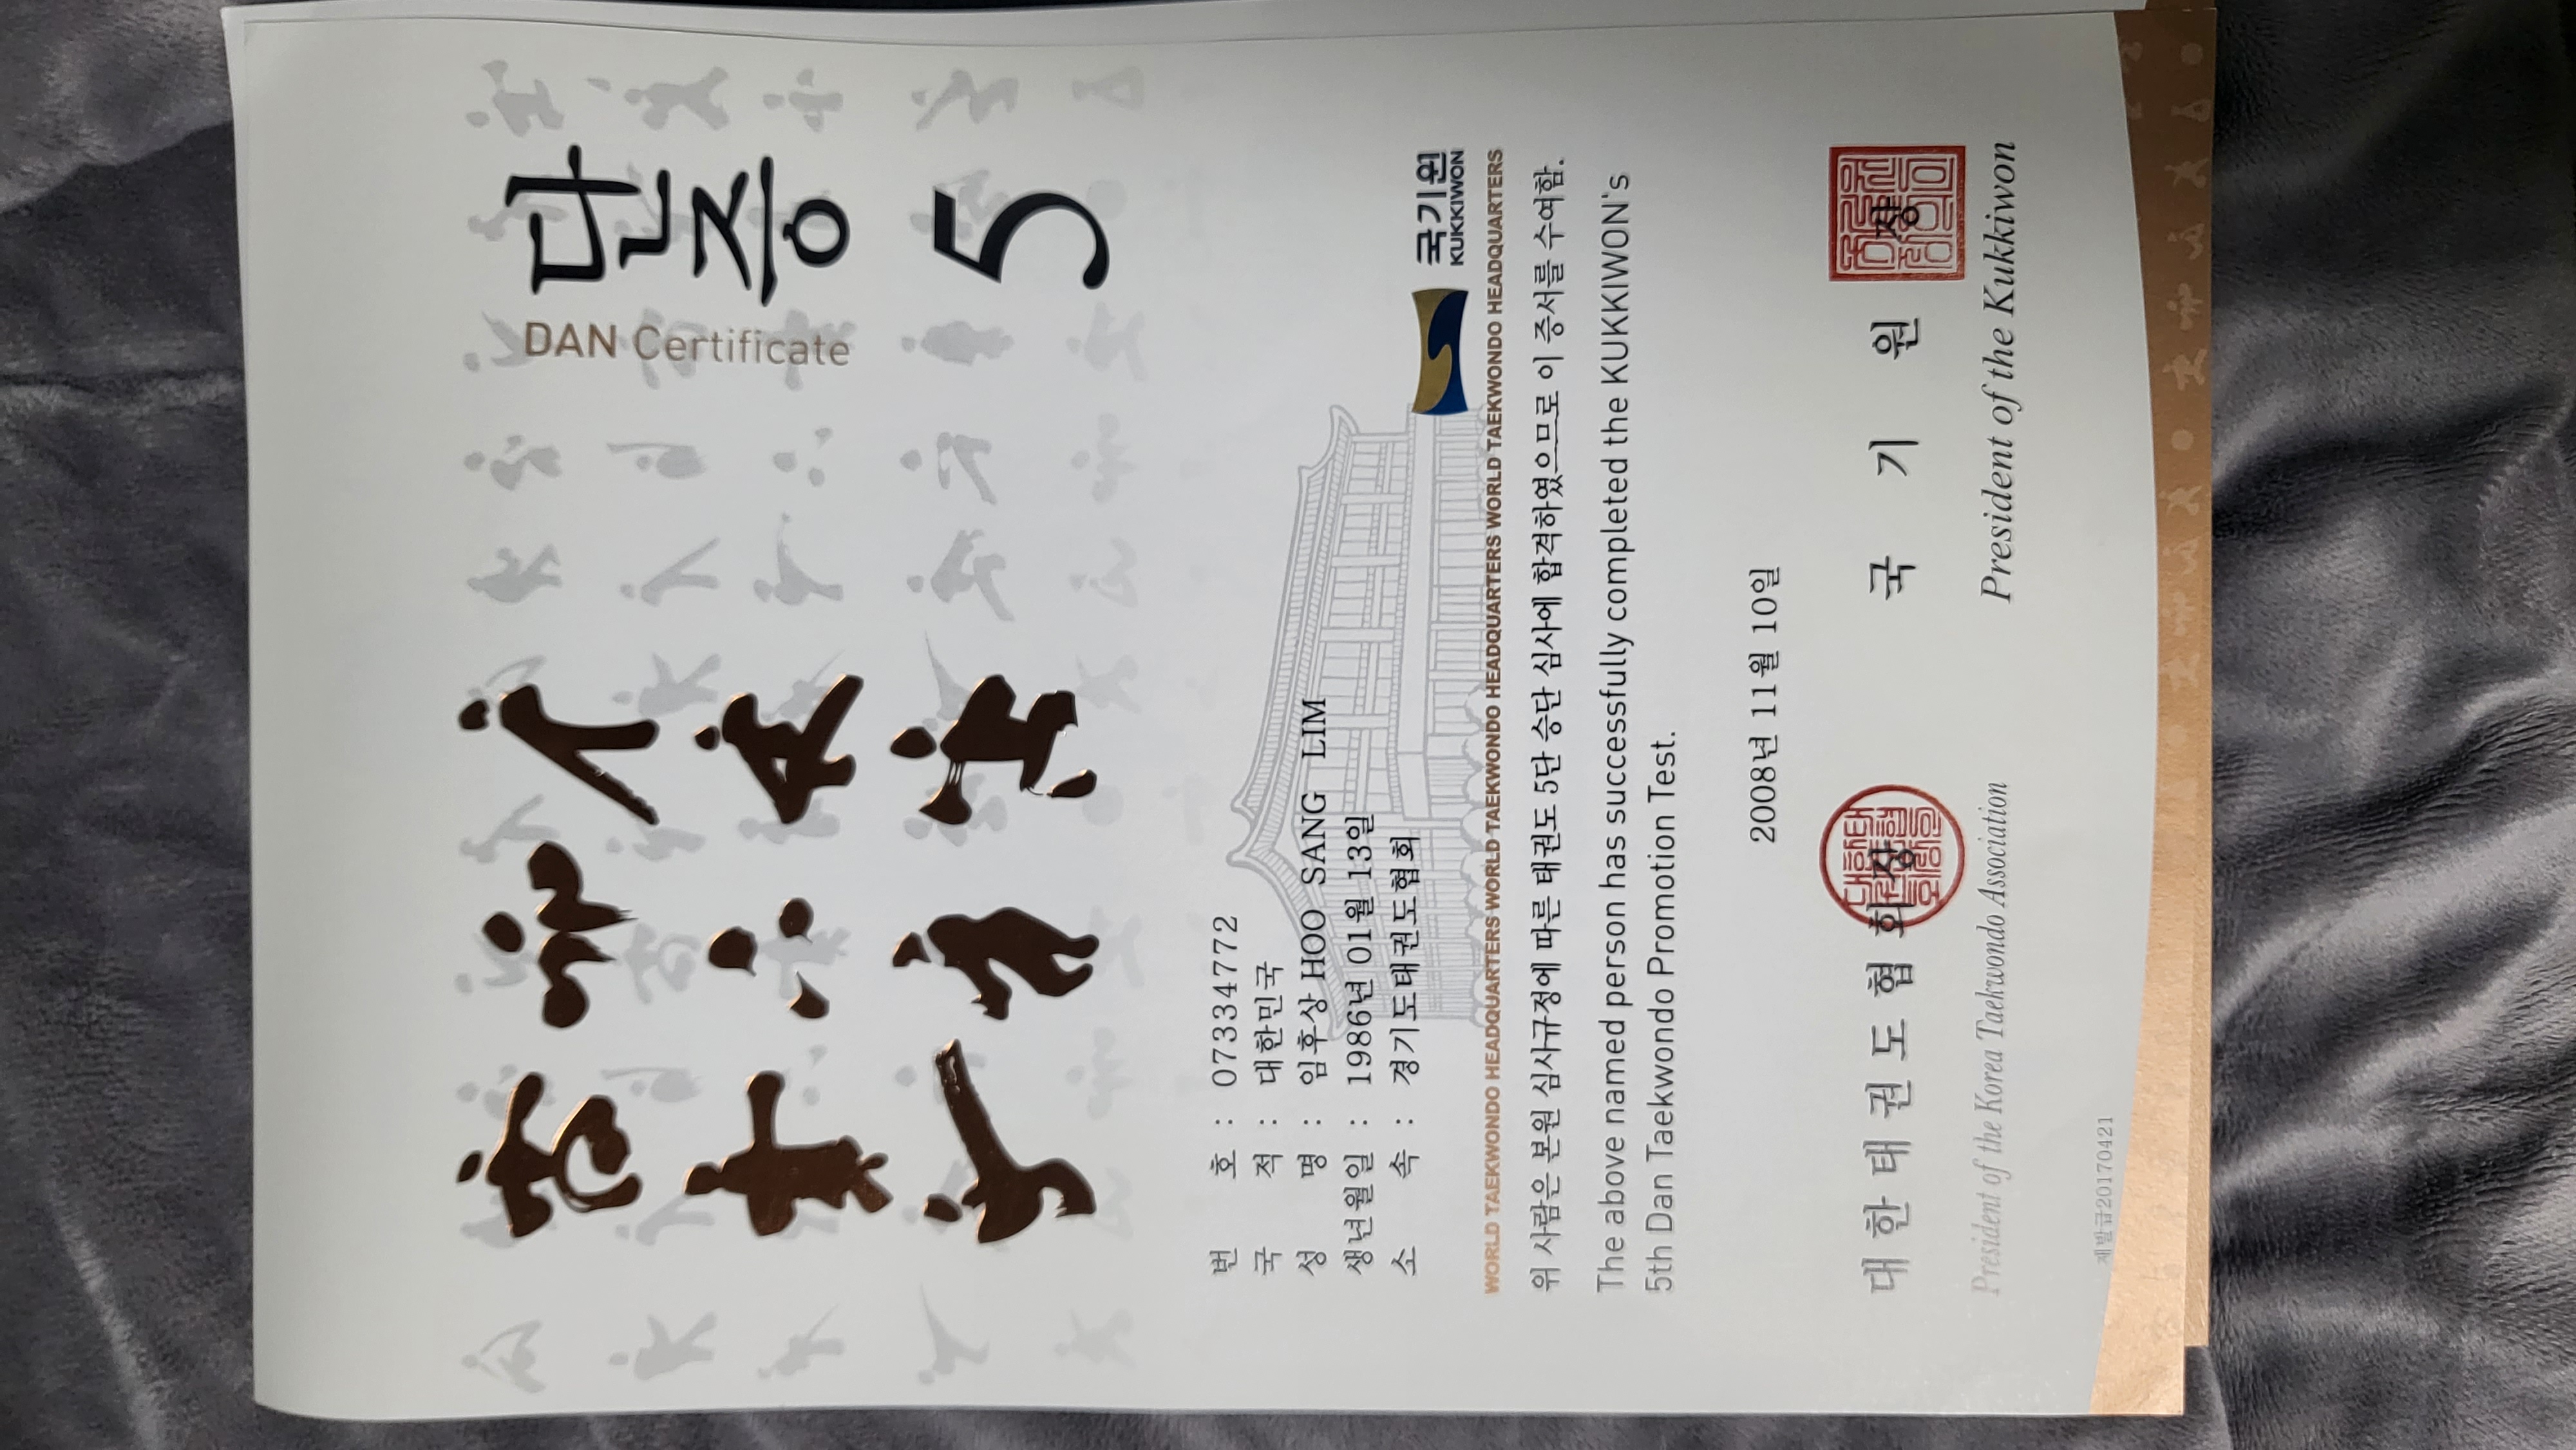 단증
DAN Certificate
5
번 호 : 07334772
국 적 : 대한민국
성 명 : 임후상 HOO SANG LIM
생년월일 : 1986년 01월 13일
소 속 : 경기도태권도협회
국기원
KUKKIWON
WORLD TAEKWONDO HEADQUARTERS WORLD TAEKWONDO HEADQUARTERS WORLD TAEKWONDO HEADQUARTERS WORLD TAEKWONDO HEADQUARTERS
위 사람은 본원 심사규정에 따른 태권도 5단 승단 심사에 합격하였으므로 이 증서를 수여함.
The above named person has successfully completed the KUKKIWON's
5th Dan Taekwondo Promotion Test.
2008년 11월 10일
대한태권도협회장 국 기 원 장
President of the Korea Taekwondo Association President of the Kukkiwon
재발급20170421